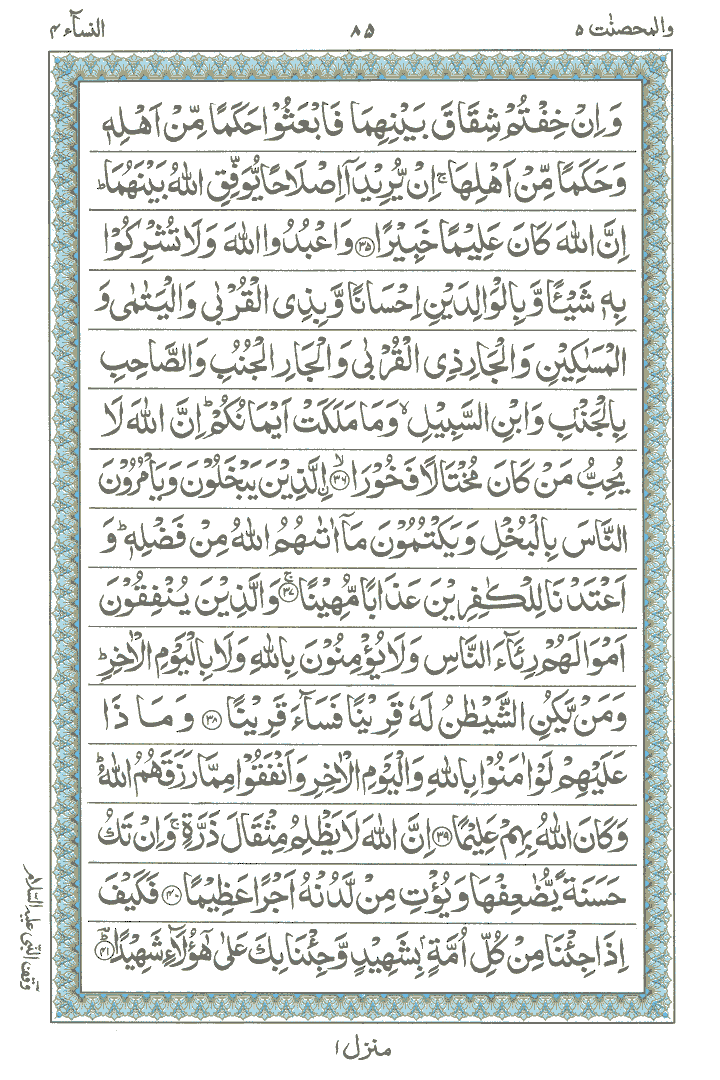 والمحصنٰت ۵
۸۵
النسآء ۴
وَاِنْ خِفْتُمْ شِقَاقَ بَيْنِهِمَا فَابْعَثُوْا حَكَمًا مِّنْ اَهْلِهٖ
وَحَكَمًا مِّنْ اَهْلِهَا ۚ اِنْ يُّرِيْدَاۤ اِصْلَاحًا يُّوَفِّقِ اللّٰهُ بَيْنَهُمَا ؕ
اِنَّ اللّٰهَ كَانَ عَلِيْمًا خَبِيْرًا ﴿۳۵﴾ وَاعْبُدُوا اللّٰهَ وَلَا تُشْرِكُوْا
بِهٖ شَيْـًٔا وَّبِالْوَالِدَيْنِ اِحْسَانًا وَّبِذِى الْقُرْبٰى وَالْيَتٰمٰى وَ
الْمَسٰكِيْنِ وَالْجَارِ ذِى الْقُرْبٰى وَالْجَارِ الْجُنُبِ وَالصَّاحِبِ
بِالْجَنْۢبِ وَابْنِ السَّبِيْلِ ۙ وَمَا مَلَكَتْ اَيْمَانُكُمْ ؕ اِنَّ اللّٰهَ لَا
يُحِبُّ مَنْ كَانَ مُخْتَالًا فَخُوْرًا ﴿۳۶﴾ ۙ اۨلَّذِيْنَ يَبْخَلُوْنَ وَيَاْمُرُوْنَ
النَّاسَ بِالْبُخْلِ وَيَكْتُمُوْنَ مَاۤ اٰتٰىهُمُ اللّٰهُ مِنْ فَضْلِهٖ ؕ وَ
اَعْتَدْنَا لِلْكٰفِرِيْنَ عَذَابًا مُّهِيْنًا ﴿۳۷﴾ ۚ وَالَّذِيْنَ يُنْفِقُوْنَ
اَمْوَالَهُمْ رِئَآءَ النَّاسِ وَلَا يُؤْمِنُوْنَ بِاللّٰهِ وَلَا بِالْيَوْمِ الْاٰخِرِ ؕ
وَمَنْ يَّكُنِ الشَّيْطٰنُ لَهٗ قَرِيْنًا فَسَآءَ قَرِيْنًا ﴿۳۸﴾ وَمَاذَا
عَلَيْهِمْ لَوْ اٰمَنُوْا بِاللّٰهِ وَالْيَوْمِ الْاٰخِرِ وَاَنْفَقُوْا مِمَّا رَزَقَهُمُ اللّٰهُ ؕ
وَكَانَ اللّٰهُ بِهِمْ عَلِيْمًا ﴿۳۹﴾ اِنَّ اللّٰهَ لَا يَظْلِمُ مِثْقَالَ ذَرَّةٍ ۚ وَاِنْ تَكُ
حَسَنَةً يُّضٰعِفْهَا وَيُؤْتِ مِنْ لَّدُنْهُ اَجْرًا عَظِيْمًا ﴿۴۰﴾ فَكَيْفَ
اِذَا جِئْنَا مِنْ كُلِّ اُمَّةٍۭ بِشَهِيْدٍ وَّجِئْنَا بِكَ عَلٰى هٰۤؤُلَآءِ شَهِيْدًا ﴿۴۱﴾
وقف النبی علیہ السلام
منزل ۱